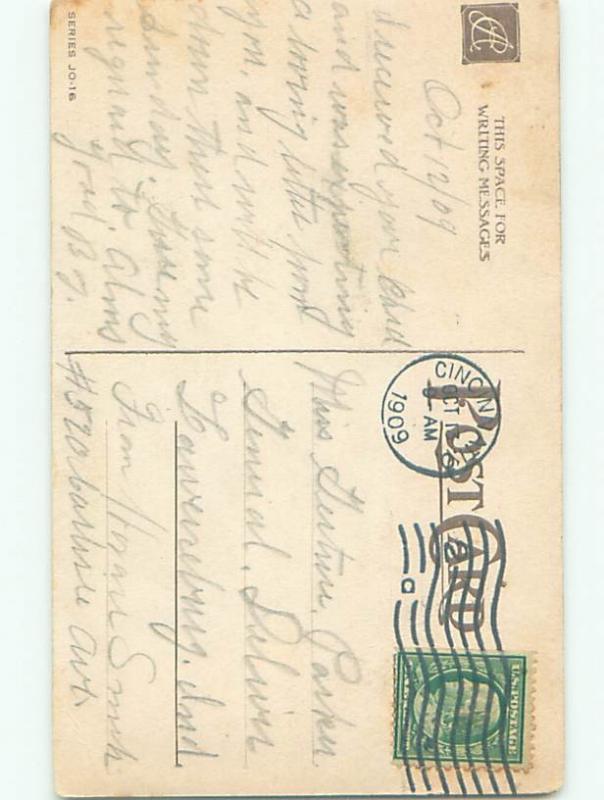 THIS SPACE FOR
WRITING MESSAGES
Oct 12/09
I received your card
and was expecting
a loving letter from
you, and will be
down there some
Sunday. Give my
regards to
Good By.
SERIES JO-16
POST CARD
CINCIN
OCT
AM
1909
U.S. POSTAGE
Miss Parker
Lawrenceburg. Ind
From Smith